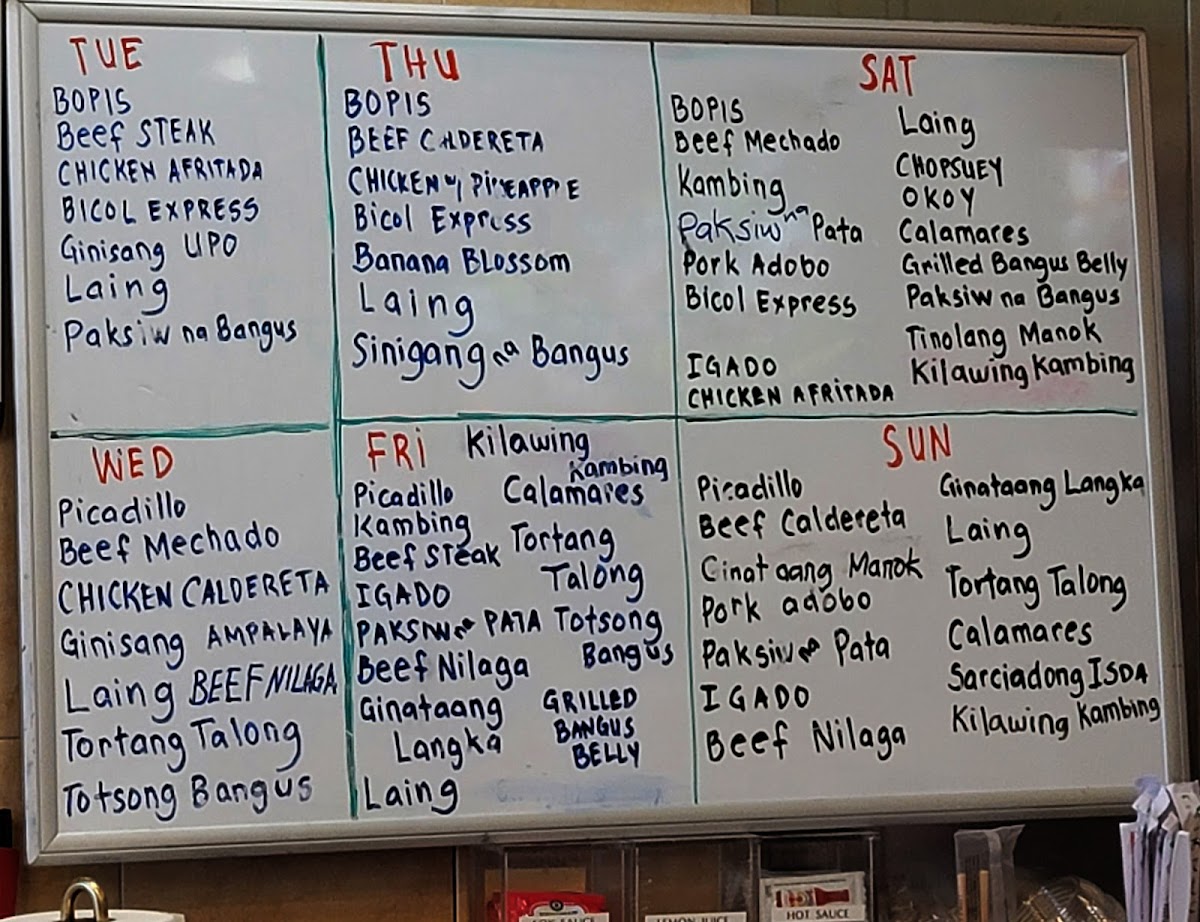 TUE
BOPIS
Beef STEAK
CHICKEN AFRITADA
BICOL EXPRESS
Ginisang UPO
Laing
Paksiw na Bangus
THU
BOPIS
BEEF CALDERETA
CHICKEN w/ PiNEAPPLE
Bicol Express
Banana BLossom
Laing
Sinigang na Bangus
SAT
BOPIS
Beef Mechado
Kambing
Paksiw na Pata
Pork Adobo
Bicol Express
IGADO
CHICKEN AFRITADA
Laing
CHOPSUEY
OKOY
Calamares
Grilled Bangus Belly
Paksiw na Bangus
Tinolang Manok
Kilawing Kambing
WED
Picadillo
Beef Mechado
CHICKEN CALDERETA
Ginisang AMPALAYA
Laing BEEF NILAGA
Tortang Talong
Totsong Bangus
FRi
Picadillo
Kambing
Beef Steak
IGADO
PAKSIW na PATA
Beef Nilaga
Ginataang
Langka
Laing
Kilawing
Kambing
Calamares
Tortang
Talong
Totsong
Bangus
GRILLED
BANGUS
BELLY
SUN
Picadillo
Beef Caldereta
Ginataang Manok
Pork adobo
Paksiw na Pata
IGADO
Beef Nilaga
Ginataang Langka
Laing
Tortang Talong
Calamares
Sarciadong ISDA
Kilawing Kambing
SOY SAUCE
LEMON JUICE
HOT SAUCE